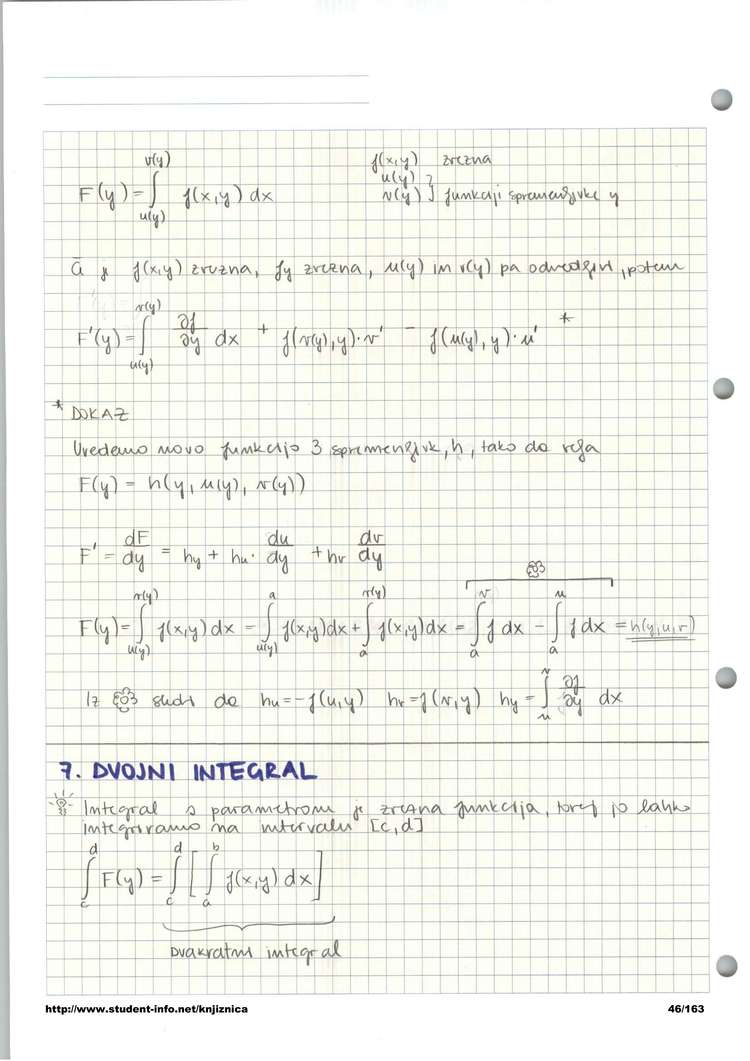 F(y) = ∫_{u(y)}^{v(y)} f(x,y) dx
f(x,y) zvezna
u(y)
v(y) } funkciji spremenljivke y
Če je f(x,y) zvezna, fy zvezna, u(y) in v(y) pa odvedljivi, potem
F'(y) = ∫_{u(y)}^{v(y)} ∂f/∂y dx + f(v(y),y)·v' − f(u(y),y)·u' *
* DOKAZ
Uvedemo novo funkcijo 3 spremenljivk, h, tako da velja
F(y) = h(y, u(y), v(y))
F' = dF/dy = hy + hu· du/dy + hv dv/dy
F(y) = ∫_{u(y)}^{v(y)} f(x,y) dx = ∫_{u(y)}^{a} f(x,y)dx + ∫_{a}^{v(y)} f(x,y)dx = ∫_{a}^{v} f dx − ∫_{a}^{u} f dx = h(y,u,v)
Iz sledi da hu = −f(u,y) hv = f(v,y) hy = ∫_{u}^{v} ∂f/∂y dx
7. DVOJNI INTEGRAL
Integral s parametrom je zvezna funkcija, torej jo lahko
integriramo na intervalu [c,d]
∫_{c}^{d} F(y) = ∫_{c}^{d} [ ∫_{a}^{b} f(x,y) dx ]
Dvakratni integral
http://www.student-info.net/knjiznica
46/163